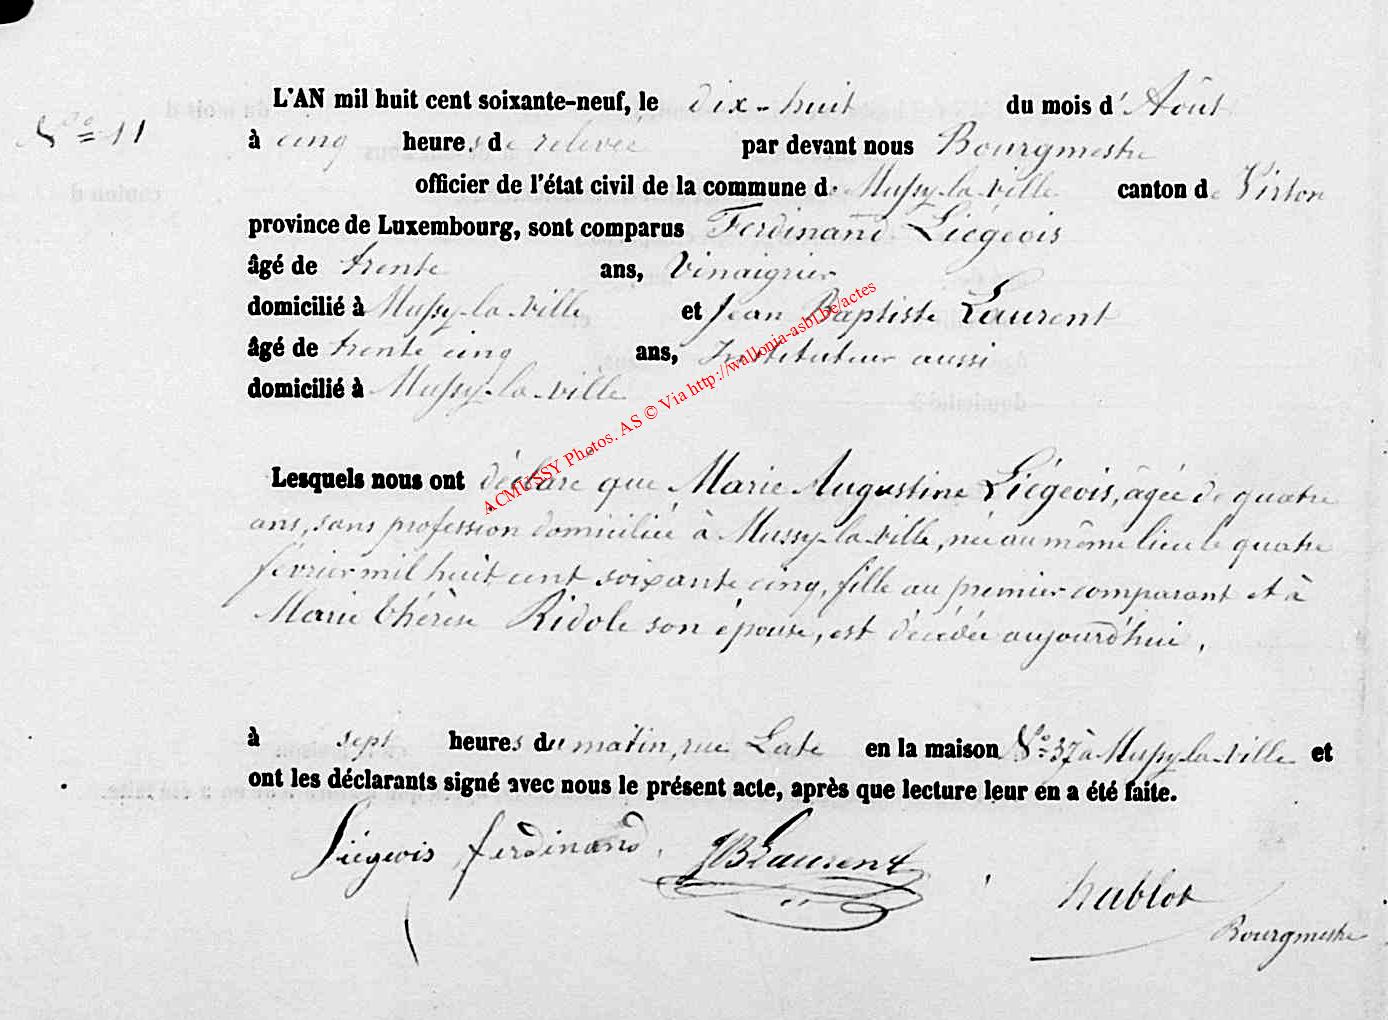 L'AN mil huit cent soixante-neuf, le dix-huit du mois d'Août
N° 11
à cinq heures de relevée par devant nous Bourgmestre
officier de l'état civil de la commune de Mussy-la-ville canton de Virton
province de Luxembourg, sont comparus Ferdinand Liégeois
âgé de trente ans, Vinaigrier
domicilié à Mussy-la-ville et Jean Baptiste Laurent
âgé de trente cinq ans, Instituteur aussi
domicilié à Mussy-la-ville
ACMUSSY Photos. AS © Via http://wallonia-asbl.be/actes
Lesquels nous ont déclaré que Marie Augustine Liégeois, âgée de quatre
ans, sans profession domiciliée à Mussy-la-ville, née au même lieu le quatre
février mil huit cent soixante cinq, fille au premier comparant et à
Marie Thérèse Ridole son épouse, est décédée aujourd'hui,
à sept heures du matin, rue Late en la maison N° 37 à Mussy-la-ville et
ont les déclarants signé avec nous le présent acte, après que lecture leur en a été faite.
Liégeois ferdinand. JBLaurent
hublot
Bourgmestre